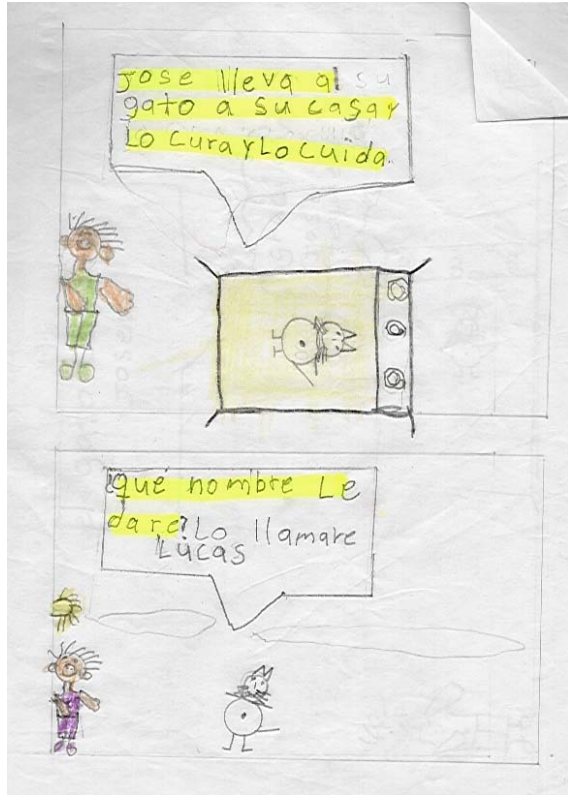 jose lleva al su
gato a su casa y
Lo cura y Lo cuida.
¿qué nombre Le
dare? Lo llamare
Lucas